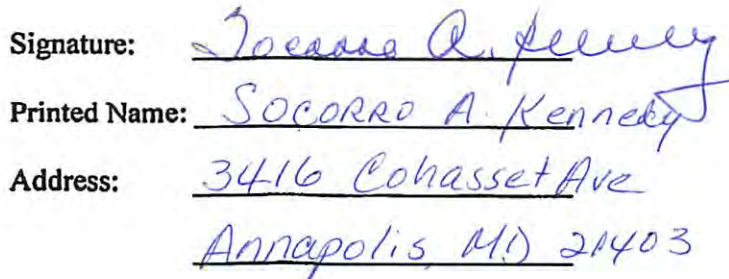 Signature: Socorro A. Kennedy
Printed Name: SOCORRO A. Kennedy
Address: 3416 Cohasset Ave
Annapolis, MD 21403